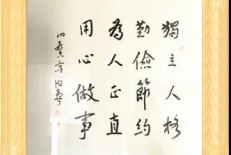 獨立人格
勤儉節約
為人正直
用心做事